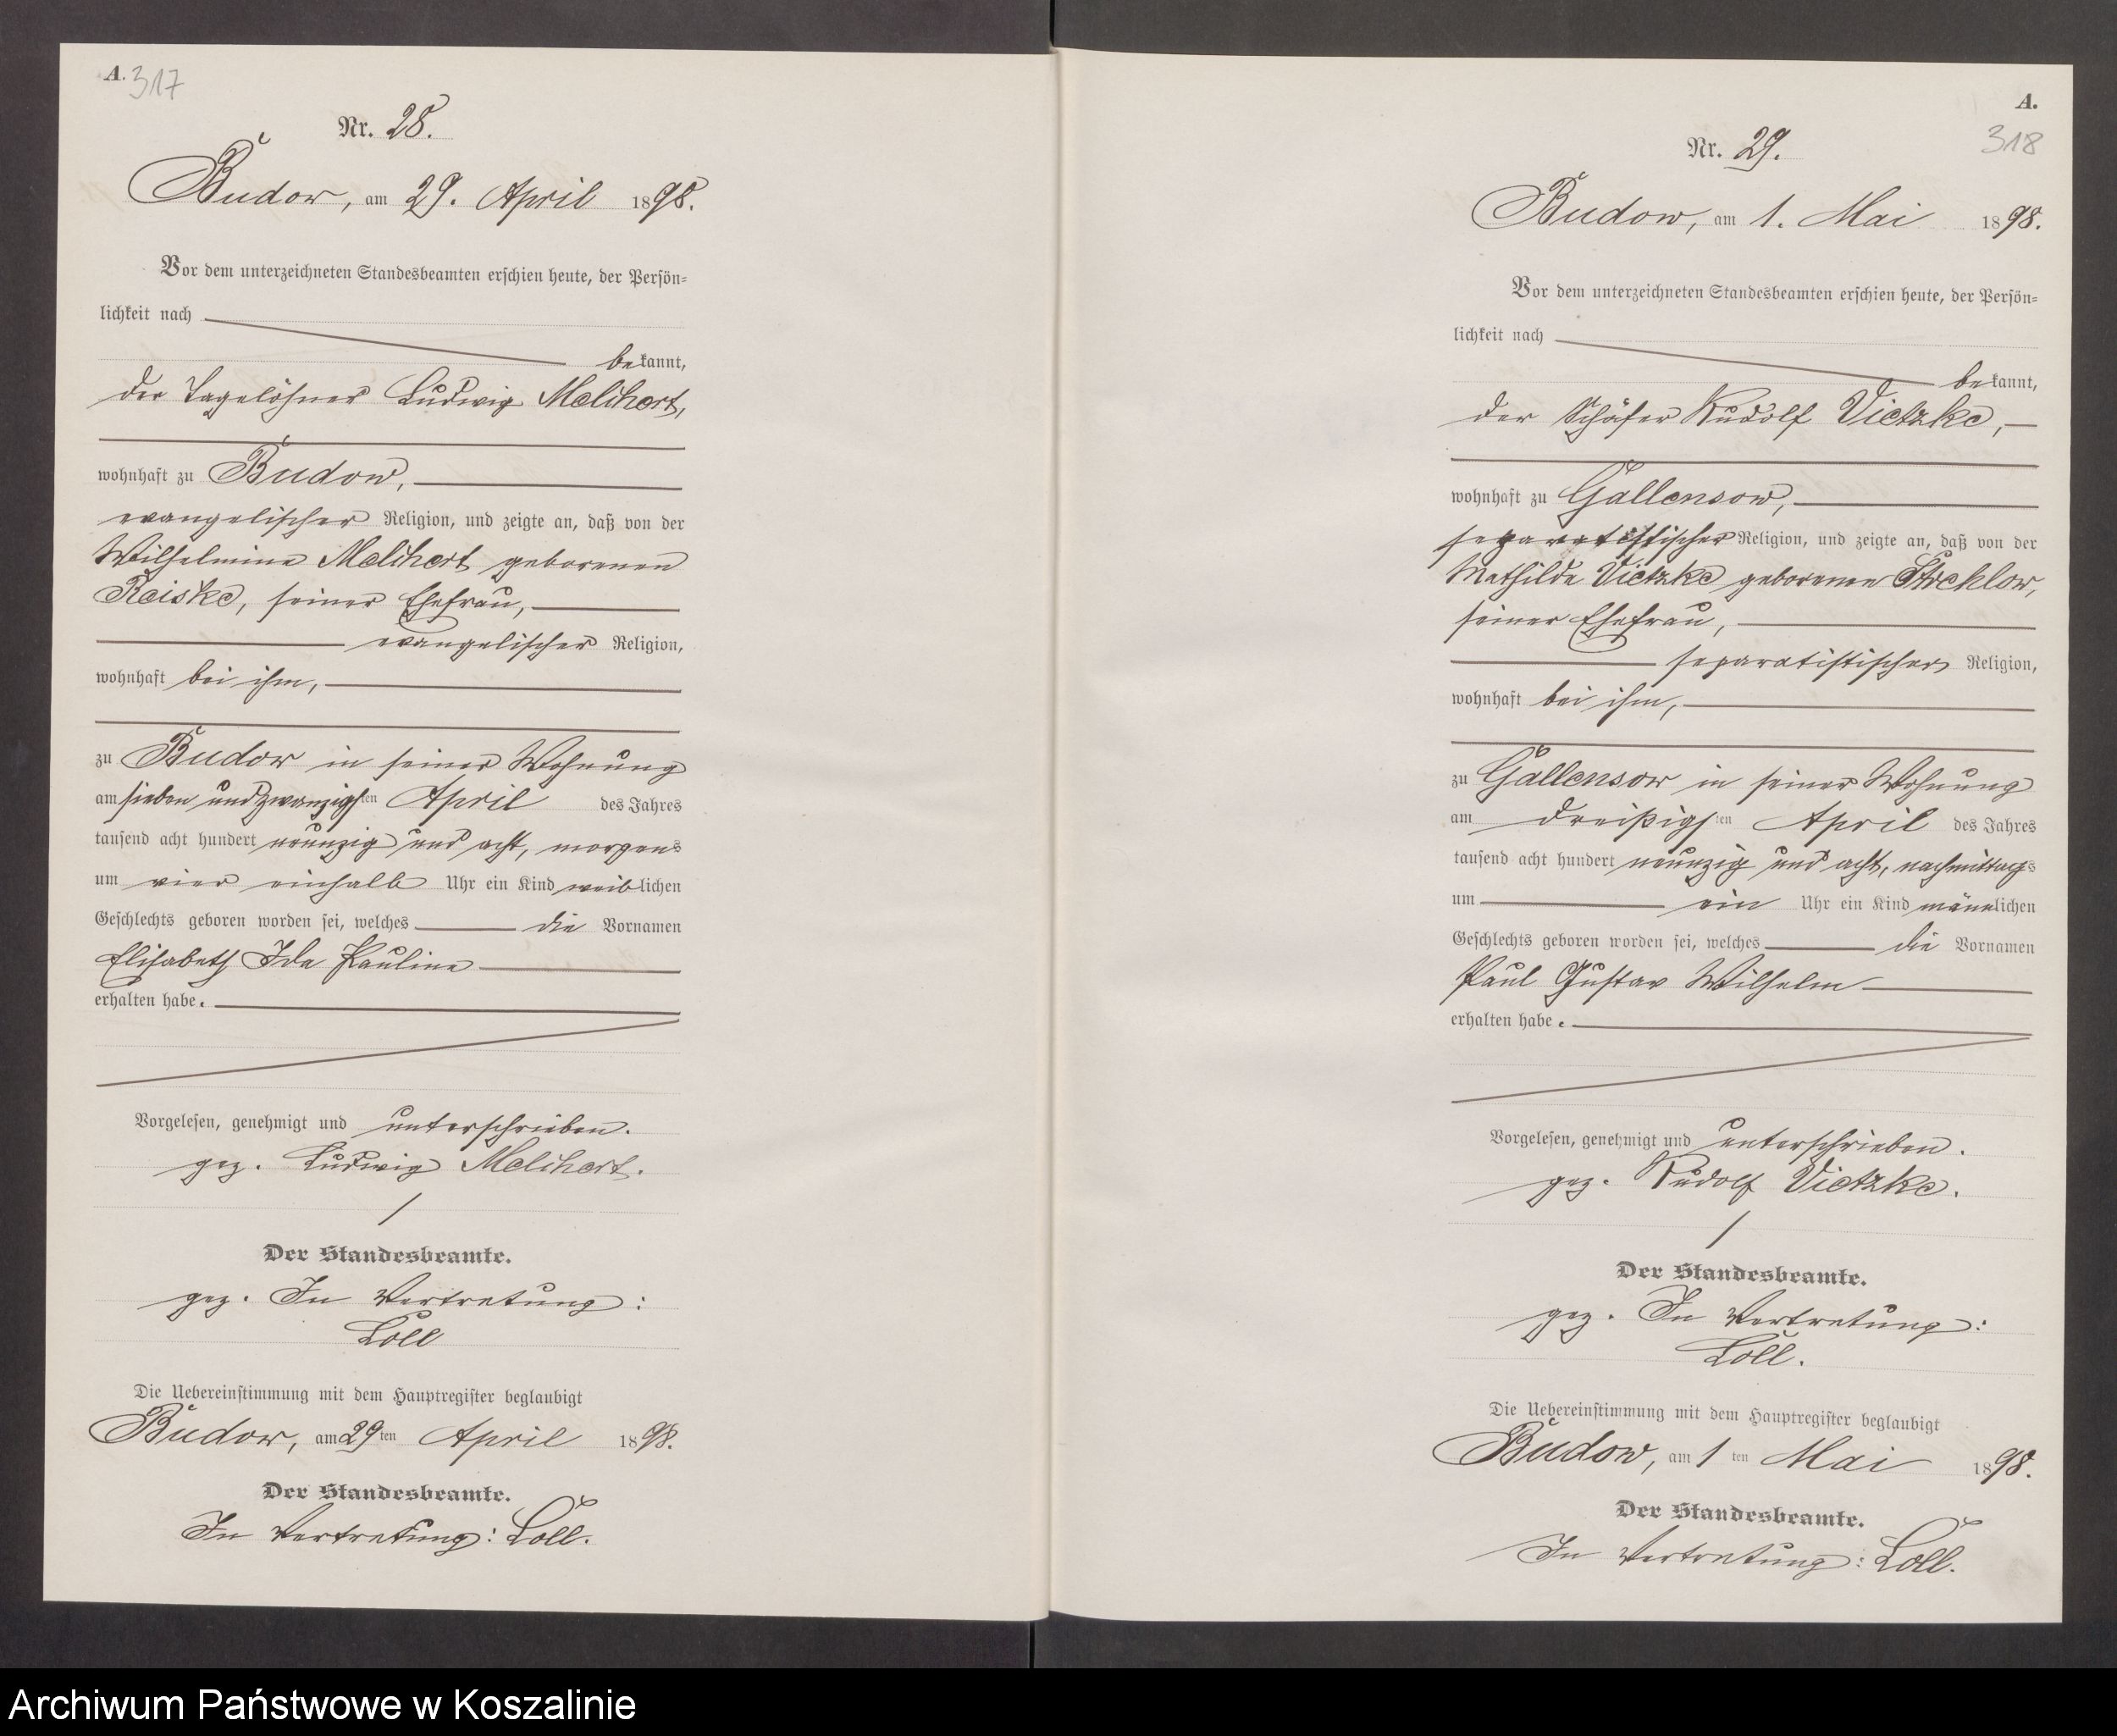 A. 317
Nr. 28.
Budow, am 29. April 1898.
Vor dem unterzeichneten Standesbeamten erschien heute, der Persön-
lichkeit nach
bekannt,
der Tagelöhner Ludwig Melchert,
wohnhaft zu Budow,
evangelischer Religion, und zeigte an, daß von der
Wilhelmine Melchert geborenen
Reiske, seiner Ehefrau,
evangelischer Religion,
wohnhaft bei ihm,
zu Budow in seiner Wohnung
am sieben und zwanzigsten April des Jahres
tausend acht hundert neunzig und acht, morgens
um vier einhalb Uhr ein Kind weiblichen
Geschlechts geboren worden sei, welches die Vornamen
Elisabeth Ida Pauline
erhalten habe.
Vorgelesen, genehmigt und unterschrieben.
gez. Ludwig Melchert.
Der Standesbeamte.
gez. In Vertretung:
Loll
Die Uebereinstimmung mit dem Hauptregister beglaubigt
Budow, am 29ten April 1898.
Der Standesbeamte.
In Vertretung: Loll.
A.
318
Nr. 29.
Budow, am 1. Mai 1898.
Vor dem unterzeichneten Standesbeamten erschien heute, der Persön-
lichkeit nach
bekannt,
der Schäfer Rudolf Vietzke,
wohnhaft zu Gallensow,
separatistischer Religion, und zeigte an, daß von der
Mathilde Vietzke geborenen Strehlow,
seiner Ehefrau,
separatistischer Religion,
wohnhaft bei ihm,
zu Gallensow in seiner Wohnung
am dreißigsten April des Jahres
tausend acht hundert neunzig und acht, nachmittags
um ein Uhr ein Kind männlichen
Geschlechts geboren worden sei, welches die Vornamen
Paul Gustav Wilhelm
erhalten habe.
Vorgelesen, genehmigt und unterschrieben.
gez. Rudolf Vietzke.
Der Standesbeamte.
gez. In Vertretung:
Loll.
Die Uebereinstimmung mit dem Hauptregister beglaubigt
Budow, am 1ten Mai 1898.
Der Standesbeamte.
In Vertretung: Loll.
Archiwum Państwowe w Koszalinie